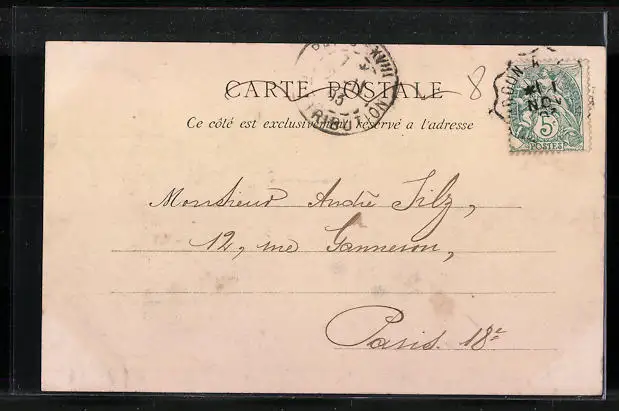 CARTE POSTALE
8
Ce côté est exclusivement réservé a l'adresse
XVIII
DISTRIBUTION
5c
POSTES
Monsieur André Silz,
12, rue Ganneron,
Paris. 18e